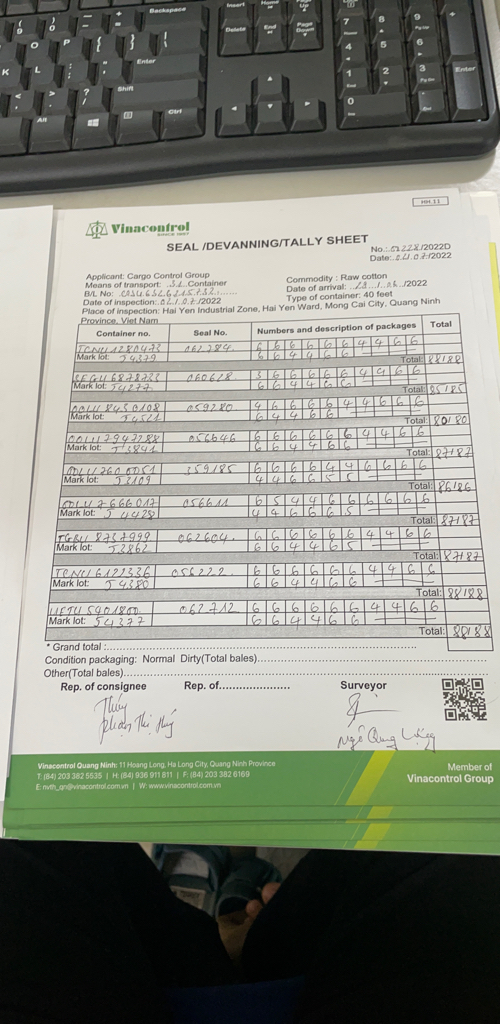 Backspace
Insert
Home
Page Up
Delete
End
Page Down
Enter
Shift
Alt
Ctrl
Enter
HH.11
Vinacontrol
SINCE 1957
SEAL /DEVANNING/TALLY SHEET
No.: /2022D
Date: 04.07/2022
Applicant: Cargo Control Group
Commodity : Raw cotton
Means of transport: 31 Container
Date of arrival: /2022
B/L No:
Type of container: 40 feet
Date of inspection: 04.07/2022
Place of inspection: Hai Yen Industrial Zone, Hai Yen Ward, Mong Cai City, Quang Ninh
Province, Viet Nam
Container no. Seal No. Numbers and description of packages Total
062784 6 6 6 6 6 6 4 4 6 6
Mark lot: 54379 6 6 4 4 6 6
Total: 88/88
060628 3 6 6 6 6 6 4 4 6 6
Mark lot: 54277 6 6 4 4 6 6
Total: 85/85
059280
Mark lot: 54521 6 4 4 6 6
Total: 80/80
056646 6 6 6 6 6 6 4 4 6 6
Mark lot: 6 6 4 4 6
Total: 87/87
359185 6 6 6 6 4 4 6 6 6 6
Mark lot: 52109 4 4 6 6 5 5
Total: 86/86
056611 6 5 4 4 6 6 6 6 6 6
Mark lot: 54428 4 4 6 6 6 5
Total: 87/87
TGBU 8737999 062604 6 6 6 6 6 6 4 4 6 6
Mark lot: 53862 6 6 4 4 6 5
Total: 87/87
TCNU 6122336 056222 6 6 6 6 6 6 4 4 6 6
Mark lot: 54380 6 6 4 4 6 6
Total: 88/88
062712 6 6 6 6 6 6 4 4 6 6
Mark lot: 54377 6 6 4 4 6 6
Total: 88/88
* Grand total :
Condition packaging: Normal Dirty(Total bales)
Other(Total bales)
Rep. of consignee Rep. of Surveyor
Thúy
Phạm Thị Thúy
Ngô Quang
Vinacontrol Quang Ninh: 11 Hoang Long, Ha Long City, Quang Ninh Province
T: (84) 203 382 5535 | H: (84) 936 911 811 | F: (84) 203 382 6169
E: nvth_qn@vinacontrol.com.vn | W: www.vinacontrol.com.vn
Member of
Vinacontrol Group